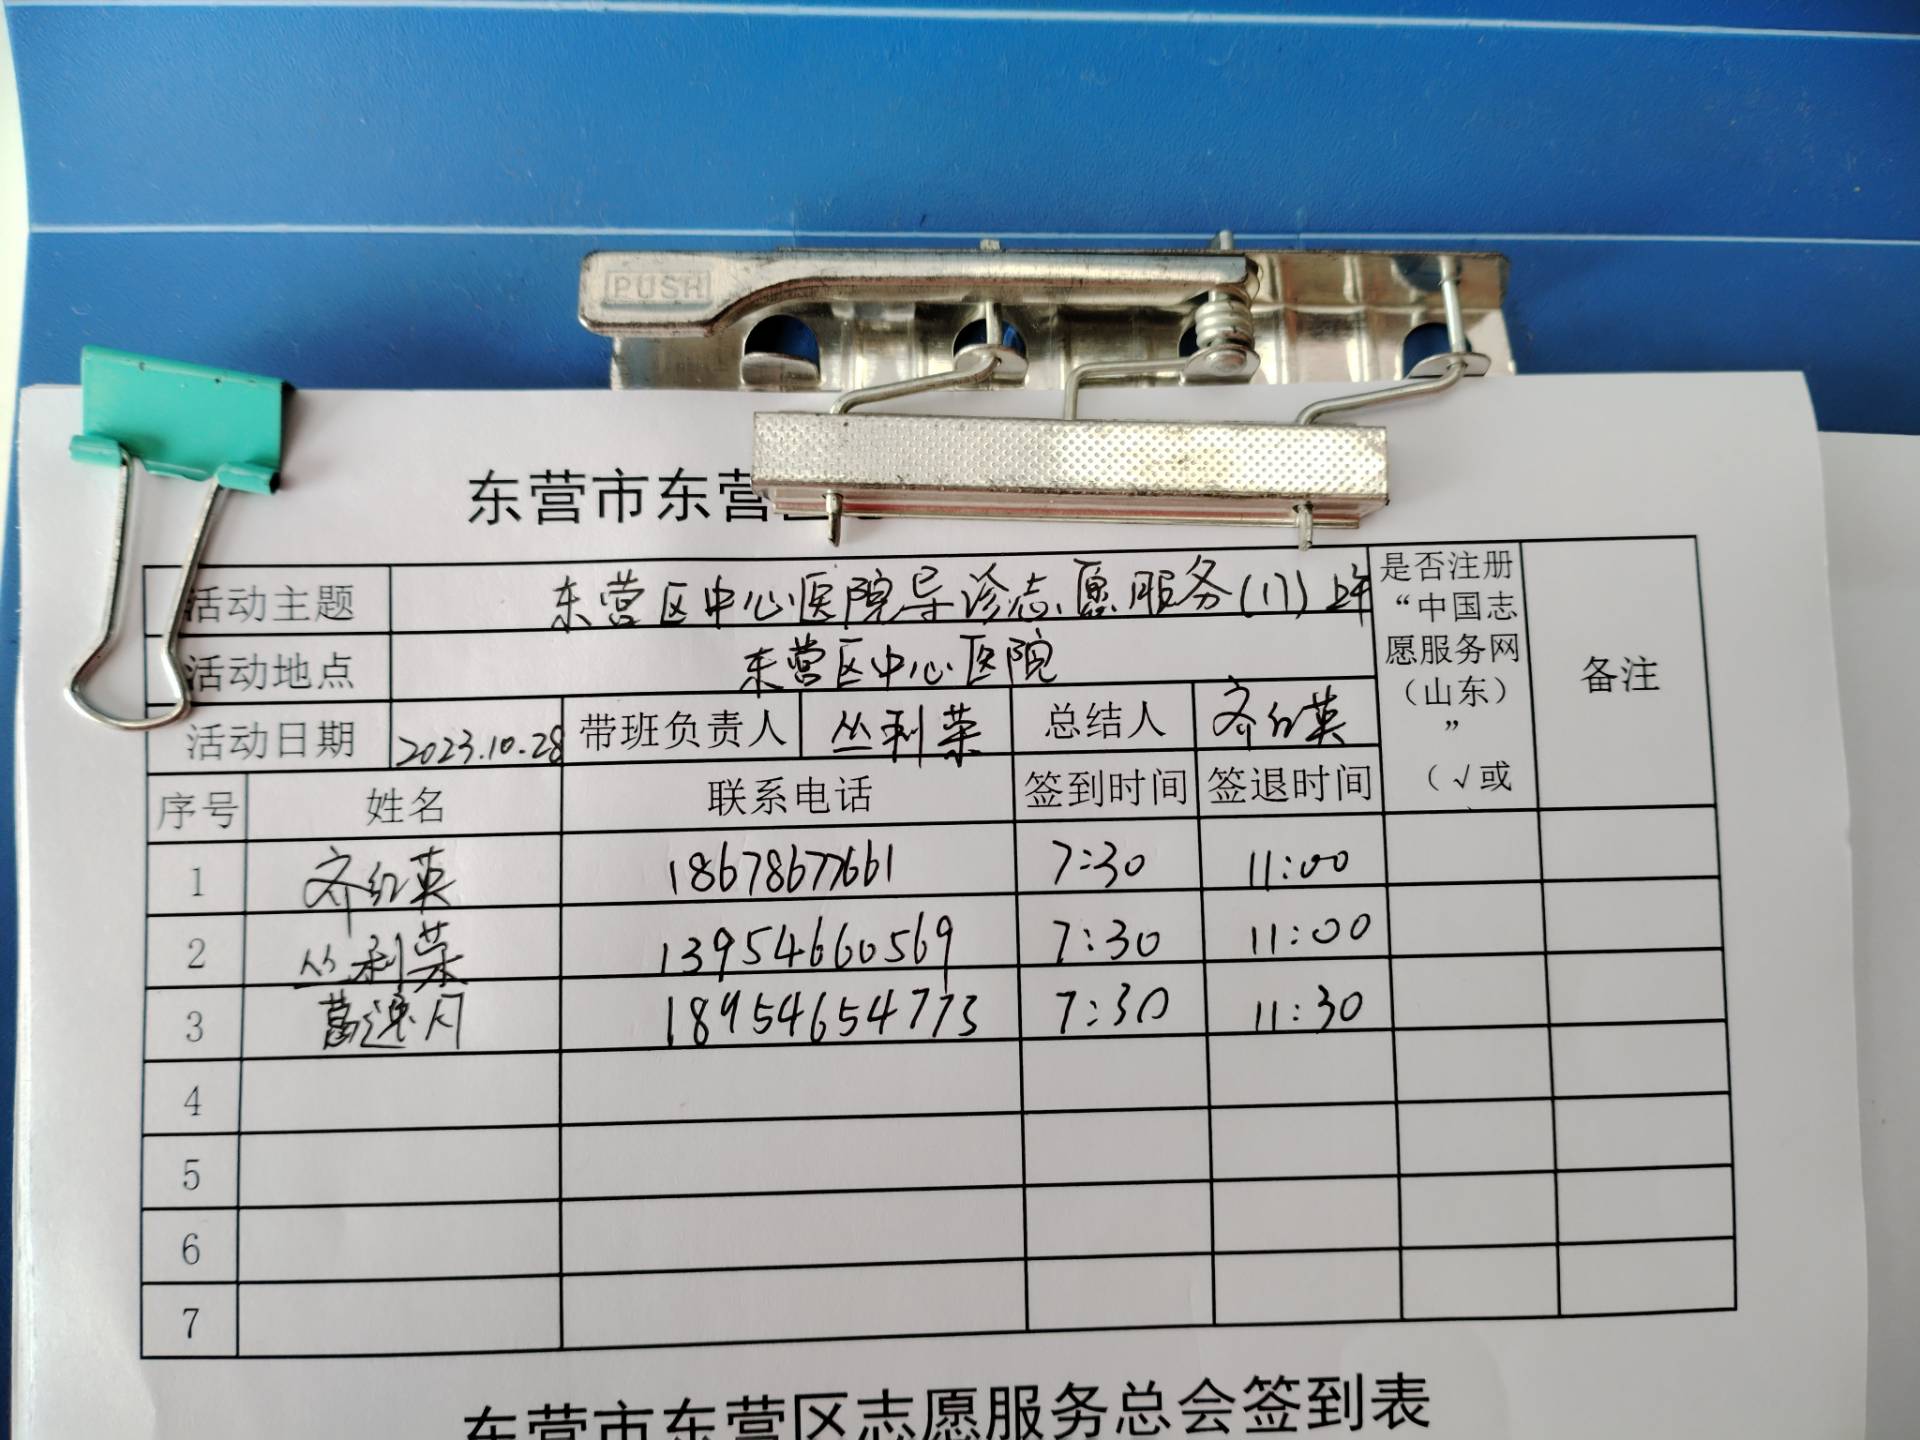 PUSH
东营市东营
活动主题 东营区中心医院导诊志愿服务(17)上午
活动地点 东营区中心医院
活动日期 2023.10.28 带班负责人 丛利荣 总结人 齐红英
是否注册
“中国志
愿服务网
（山东）
”
（√或
备注
序号 姓名 联系电话 签到时间 签退时间
1 齐红英 18678677661 7:30 11:00
2 丛利荣 13954660569 7:30 11:00
3 月 18954654773 7:30 11:30
4
5
6
7
东营市东营区志愿服务总会签到表